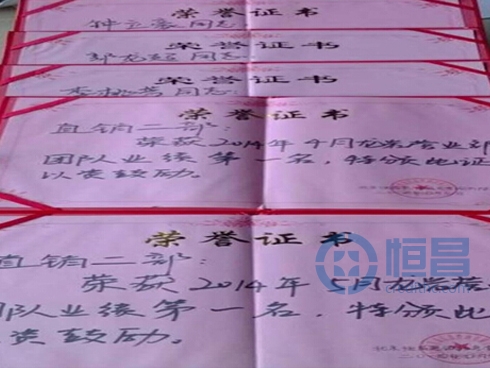 荣誉证书
同志
荣誉证书
郭龙超 同志
荣誉证书
同志:
荣誉证书
直销二部:
荣获2014年4月龙岩营业部
团队业绩第一名,特颁此证
以资鼓励。
荣誉证书
直销二部:
荣获2014年5月龙岩营
团队业绩第一名,特颁此
资鼓励。
恒昌